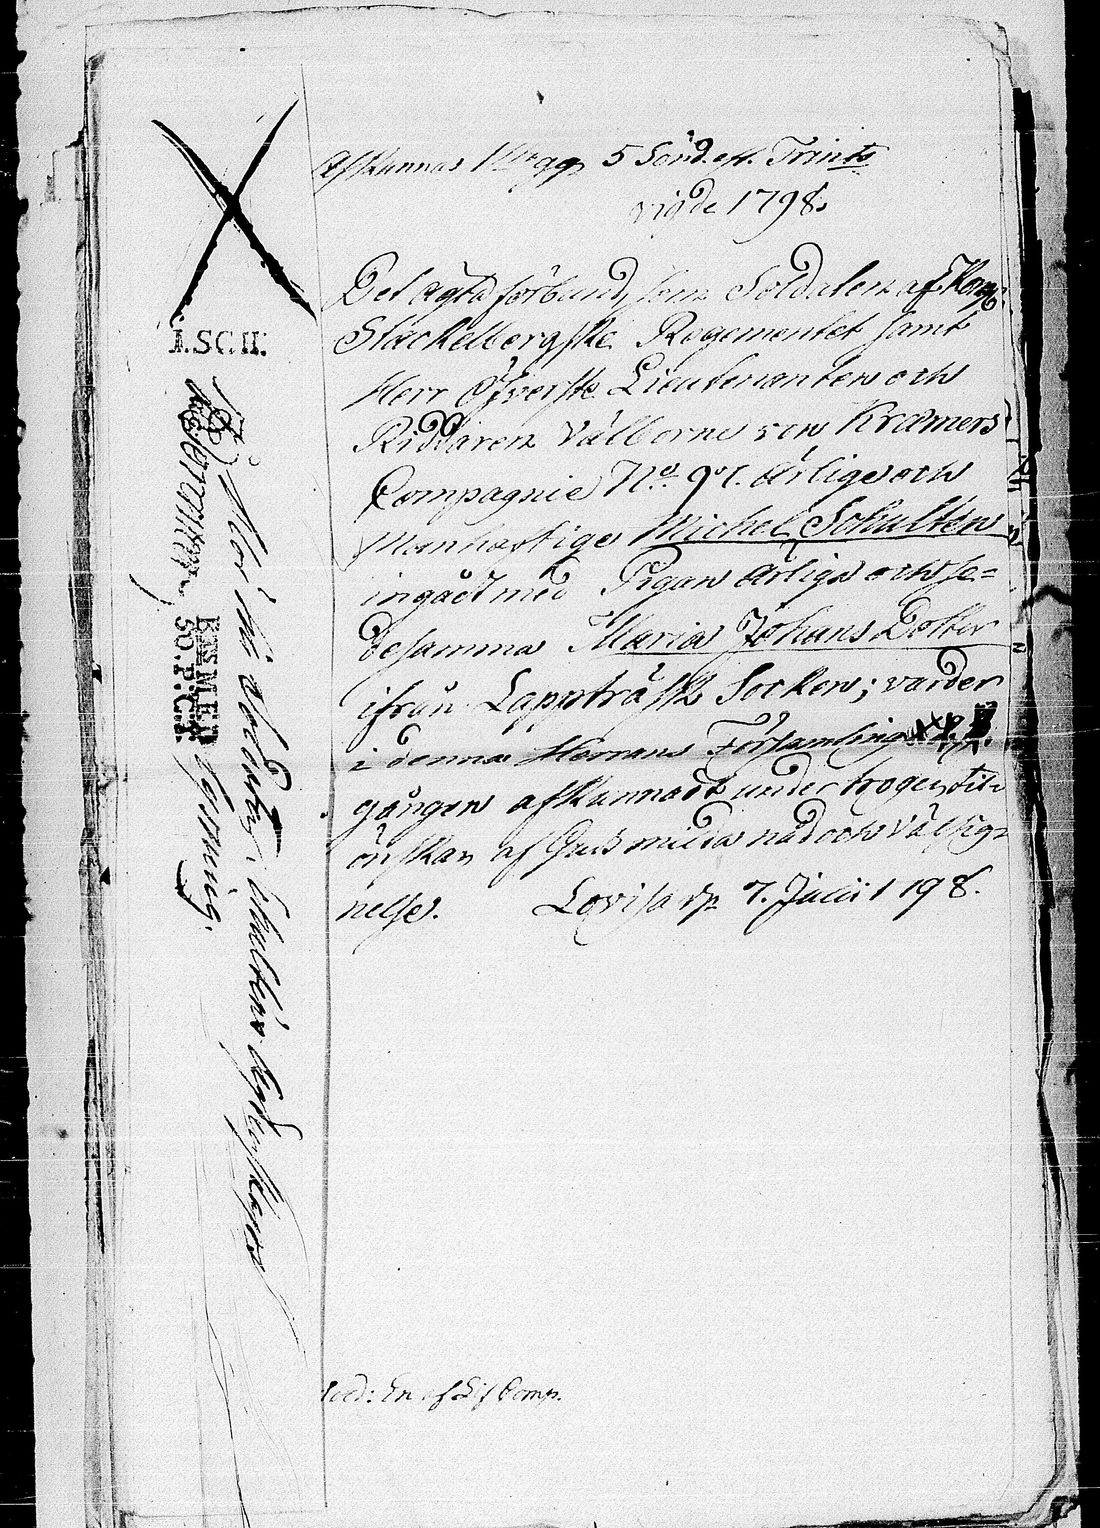 Afkunnas 1sta gg 5 Sönd. eft. Trinits
vigde 1798.
Det ägta förbund, som Soldaten af Kongl
Stackelbergske Regementet samt
Herr Öfverste Lieutenanten och
Riddaren Välborne von Kræmers
Compagnie No 97. ärlige och
Manhaftige Michel Schultén
ingådt med Pigan ärliga och se=
desamma Maria Johans Dotter
ifrån Lappträsk Socken; varder
i denna Herrans Församling
gången afkunnadt under trogen til-
önskan af Guds milda nåd och välsig-
nelse. Lovisa d. 7. Julii 1798.
I.SC.II.
SO.P.C.I.
Lysning.
Schulténs ägtenskap
af Lif Comp.